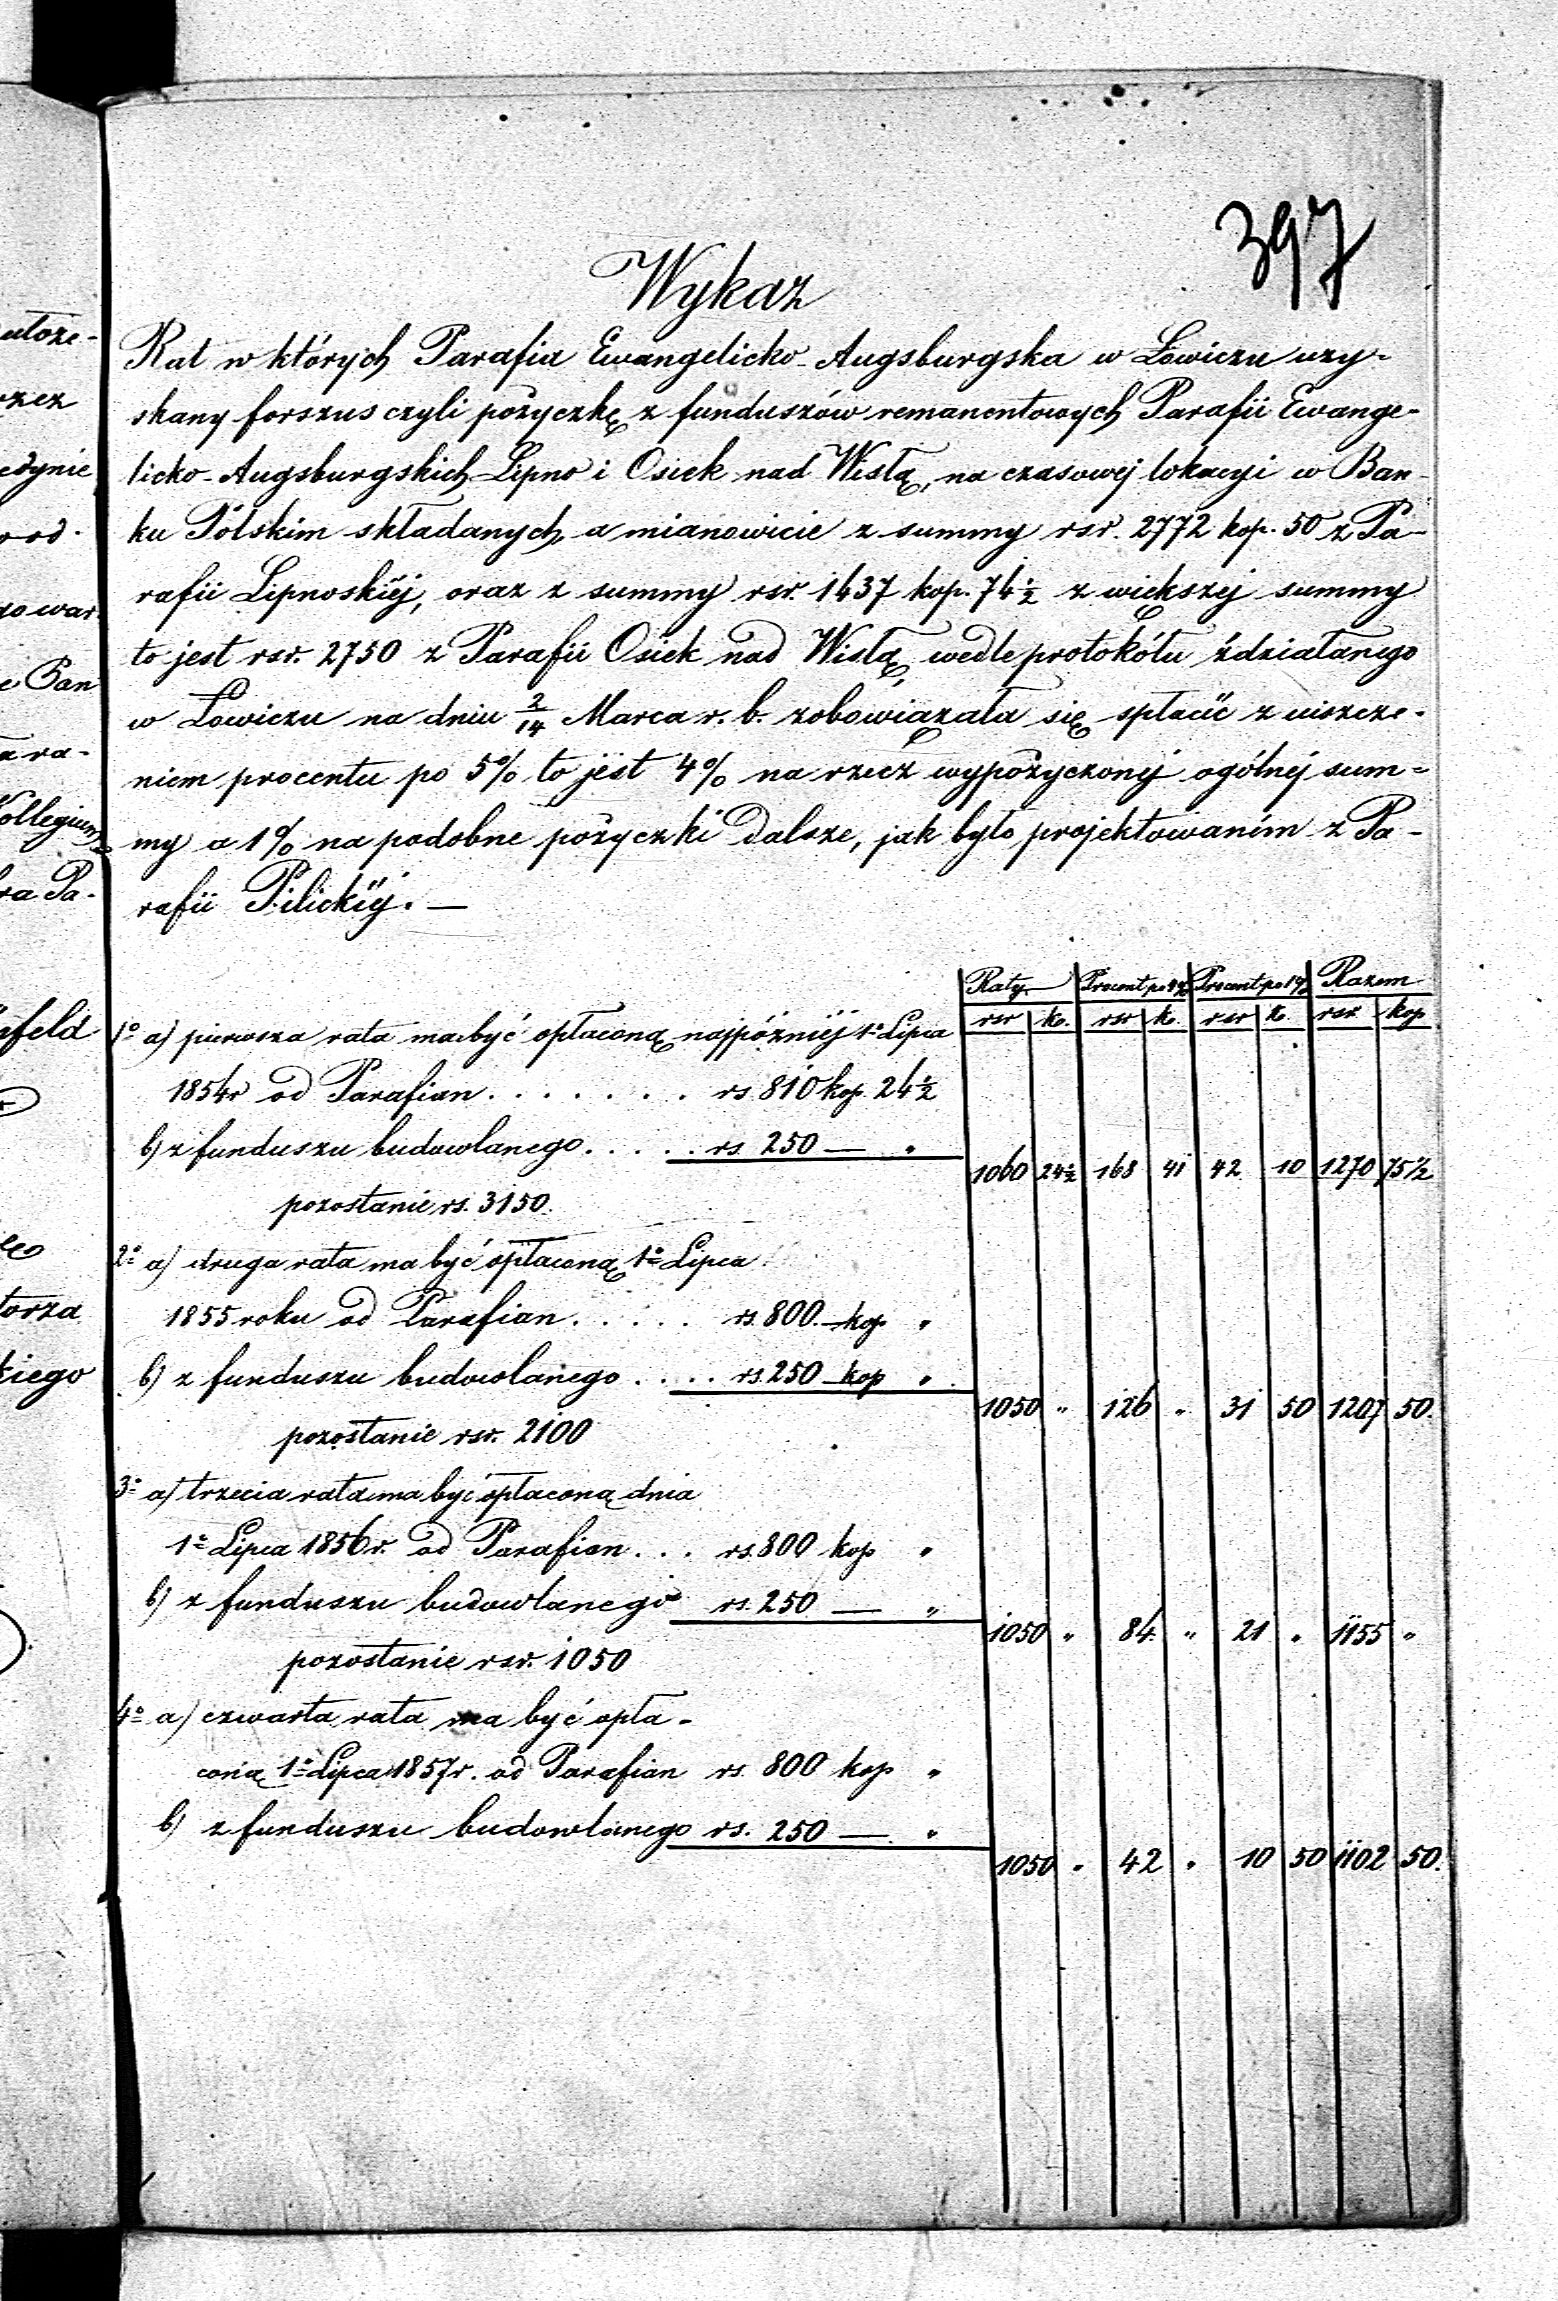 397
Wykaz
Rat w których Parafia Ewangelicko-Augsburgska w Łowiczu uzy-
skany forszus czyli pożyczkę z funduszów remanentowych Parafii Ewange-
licko-Augsburgskich Lipno i Osiek nad Wisłą, na czasowej lokacyi w Ban-
ku Polskim składanych, a mianowicie z summy rsr. 2772 kop. 50 z Pa-
rafii Lipnoskiéj, oraz z summy rsr. 1437 kop. 74½ z większej summy
to jest rsr. 2750 z Parafii Osiek nad Wisłą, wedle protokółu zdziałanego
w Łowiczu na dniu 2/14 Marca r. b. zobowiązała się spłacić z uiszcze-
niem procentu po 5% to jest 4% na rzecz wypożyczonéj ogólnéj sum-
my a 1% na podobne pożyczki dalsze, jak było projektowaném z Pa-
rafii Pilickiéj. —
Raty Procent po 4% Procent po 1% Razem
rsr k. rsr k. rsr k. rsr kop
1o a) pierwsza rata ma być opłaconą najpóźniéj 1o Lipca
1854r od Parafian . . . . . . . rs. 810 kop. 24½
b) z funduszu budowlanego . . . . . rs. 250 — "
1060 24½ 168 41 42 10 1270 75½
pozostanie rs. 3150.
2o a) druga rata ma być opłaconą 1o Lipca
1855 roku od Parafian . . . . . rs. 800. kop "
b) z funduszu budowlanego . . . . rs. 250 kop "
1050 " 126 " 31 50 1207 50.
pozostanie rsr. 2100
3o a) trzecia rata ma być opłaconą dnia
1o Lipca 1856 r. od Parafian . . . rs. 800 kop "
b) z funduszu budowlanego rs. 250 — "
1050 " 84. " 21 " 1155 "
pozostanie rsr. 1050
4o a) czwarta rata ma być opła-
coną 1o Lipca 1857r. od Parafian rs. 800 kop "
b) z funduszu budowlanego rs. 250 — "
1050 " 42 " 10 50 1102 50.